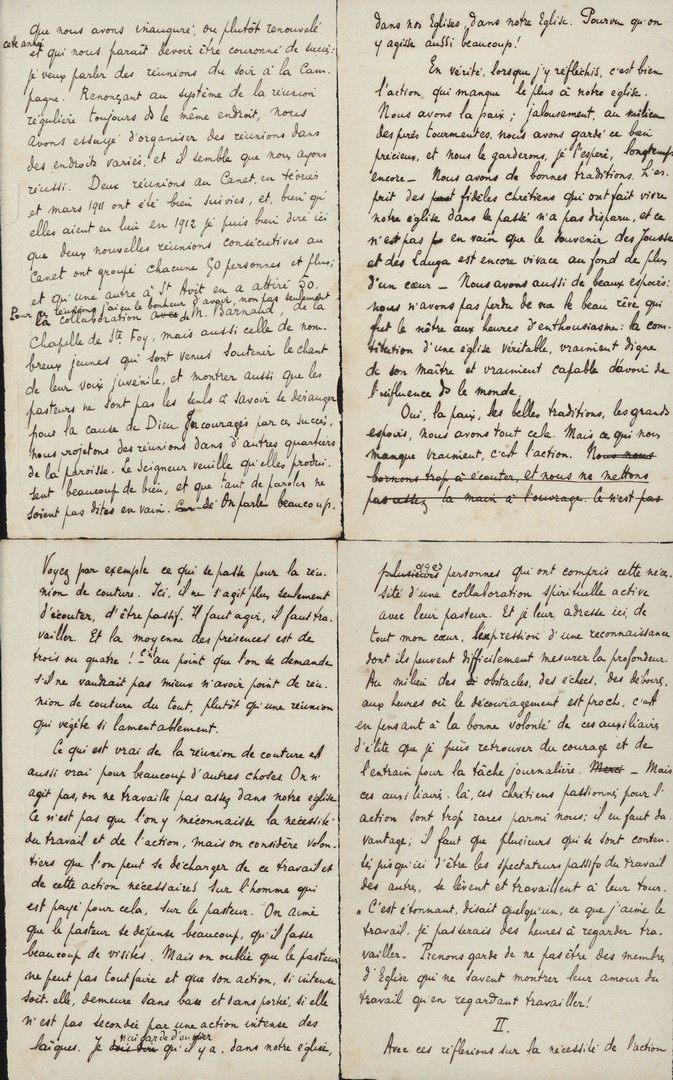 que nous avons inauguré, ou plutôt renouvelé
cette année et qui nous parait devoir être couronné de succès:
je veux parler des réunions du soir à la Cam-
pagne. Renonçant au système de la réunion
régulière toujours ds le même endroit, nous
avons essayé d'organiser des réunions dans
des endroits variés, et il semble que nous ayons
réussi. Deux réunions au Canet, en février
et mars 1911 ont été bien suivies, et, bien qu'
elles aient eu lieu en 1912 je puis bien dire ici
que deux nouvelles réunions consécutives au
Canet ont groupé chacune 50 personnes et plus;
et qu'une autre à St Avit en a attiré 50.
Pour ces réunions j'ai eu le bonheur d'avoir, non pas seulement
la collaboration de M. Barnaud, de la
Chapelle de Ste Foy, mais aussi celle de nom-
breux jeunes qui sont venus soutenir le chant
de leur voix juvénile, et montrer aussi que les
pasteurs ne sont pas les seuls à savoir se déranger
pour la cause de Dieu. Encouragés par ces succès,
nous projetons des réunions dans d'autres quartiers
de la paroisse. Le Seigneur veuille qu'elles produi-
sent beaucoup de bien, et que tant de paroles ne
soient pas dites en vain. On parle beaucoup,
dans nos Eglises, dans notre Eglise. Pourvu qu'on
y agisse aussi beaucoup!
En vérité, lorsque j'y réfléchis, c'est bien
l'action qui manque le plus à notre église.
Nous avons la paix; jalousement, au milieu
des pires tourmentes, nous avons gardé ce bien
précieux, et nous le garderons, je l'espère, longtemps
encore – Nous avons de bonnes traditions. L'es-
prit des fidèles chrétiens qui ont fait vivre
notre église dans le passé n'a pas disparu, et ce
n'est pas en vain que le souvenir des Jousse
et des est encore vivace au fond de plus
d'un cœur – Nous avons aussi de beaux espoirs:
nous n'avons pas perdu de vue le beau rêve qui
fut le nôtre aux heures d'enthousiasme: la cons-
titution d'une église véritable, vraiment digne
de son maître et vraiment capable d'avoir de
l'influence ds le monde.
Oui, la paix, les belles traditions, les grands
espoirs, nous avons tout cela. Mais ce qui nous
manque vraiment, c'est l'action. Nous nous
bornons trop à écouter, et nous ne mettons
pas assez la main à l'ouvrage. Ce n'est pas
Voyez par exemple ce qui se passe pour la réu-
nion de couture. Ici, il ne s'agit plus seulement
d'écouter, d'être passif. Il faut agir, il faut tra-
vailler. Et la moyenne des présences est de
trois ou quatre! – c'est au point que l'on se demande
s'il ne vaudrait pas mieux n'avoir point de réu-
nion de couture du tout, plutôt qu'une réunion
qui végète si lamentablement.
Ce qui est vrai de la réunion de couture est
aussi vrai pour beaucoup d'autres choses. On n'
agit pas, on ne travaille pas assez dans notre église
Ce n'est pas que l'on y méconnaisse la nécessité
du travail et de l'action, mais on considère volon-
tiers que l'on peut se décharger de ce travail et
de cette action nécessaires sur l'homme qui
est payé pour cela, sur le pasteur. On aime
que le pasteur se dépense beaucoup, qu'il fasse
beaucoup de visites. Mais on oublie que le pasteur
ne peut pas tout faire et que son action, si intense
soit-elle, demeure sans base et sans portée, si elle
n'est pas secondée par une action intense des
laïques. Je n'ai garde d'oublier qu'il y a, dans notre église,
plusieurs personnes qui ont compris cette néces-
sité d'une collaboration spirituelle active
avec leur pasteur. Et je leur adresse ici, de
tout mon cœur, l'expression d'une reconnaissance
dont ils peuvent difficilement mesurer la profondeur.
Au milieu des obstacles, des échecs, des déboires,
aux heures où le découragement est proche, c'est
en pensant à la bonne volonté de ces auxiliaires
d'élite que je puis retrouver du courage et de
l'entrain pour la tâche journalière. Merci – Mais
ces auxiliaires-là, ces chrétiens passionnés pour l'
action sont trop rares parmi nous; il en faut da-
vantage; il faut que plusieurs qui se sont conten-
tés jusqu'ici d'être les spectateurs passifs du travail
des autres, se lèvent et travaillent à leur tour.
"C'est étonnant, disait quelqu'un, ce que j'aime le
travail, je passerais des heures à regarder tra-
vailler. Prenons garde de ne pas être des membres
d'Eglise qui ne savent montrer leur amour du
travail qu'en regardant travailler!
II.
Avec ces réflexions sur la nécessité de l'action